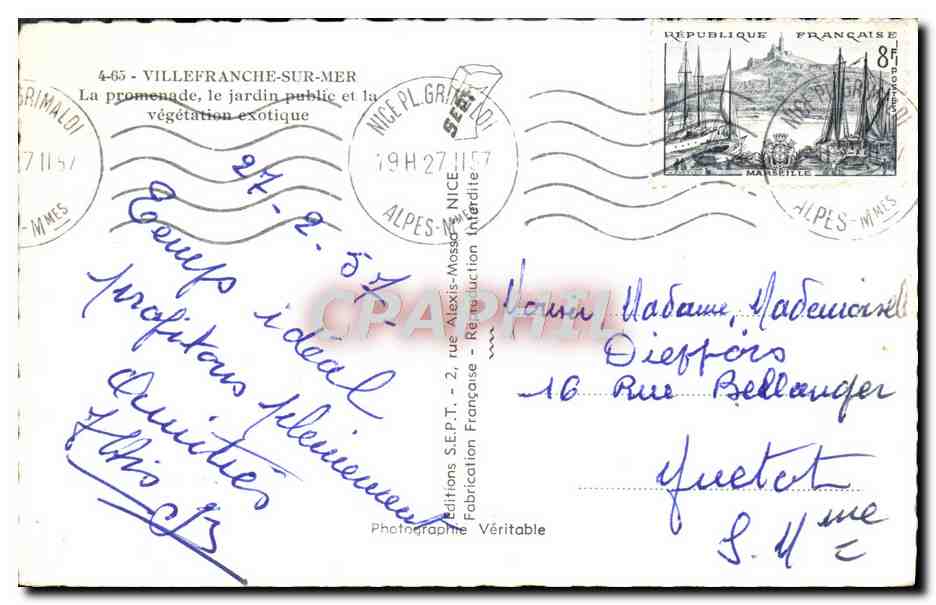 4-65 - VILLEFRANCHE-SUR-MER
La promenade, le jardin public et la
végétation exotique
GRIMALDI
7.II.57
-MMES
NICE PL. GRIMALDI
19H 27.II.57
ALPES-MMES
SEPT
RÉPUBLIQUE FRANÇAISE
8F
POSTES
MARSEILLE
NICE PL. GRIMALDI
ALPES-MMES
27-2-57-
Temps idéal
profitons pleinement
Amitiés
Editions S.E.P.T. - 2, rue Alexis-Mossa - NICE
Fabrication Française - Reproduction Interdite
Photographie Véritable
CPAPHIL
Madame, Mademoiselle
16 Rue Bellanger
Yvetot
S. Mme